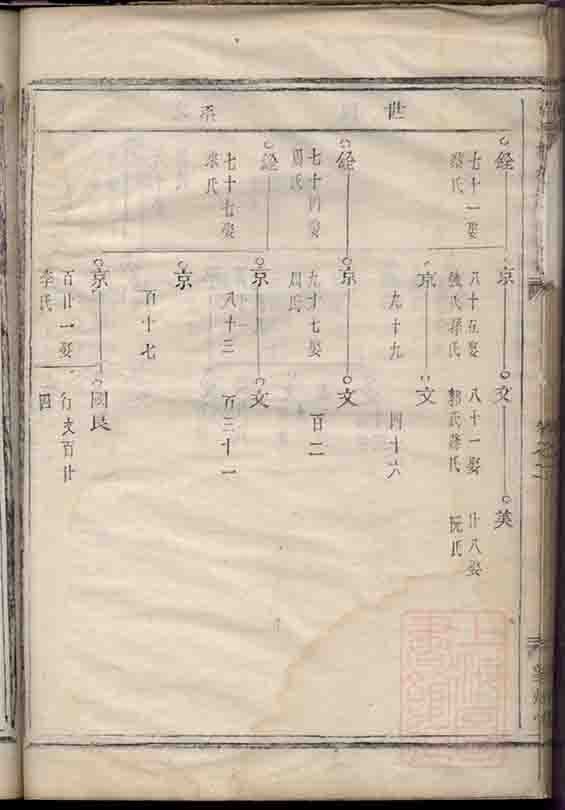 世系
經 七十一娶
蔡氏
經 七十四娶
周氏
經 七十七娶
蔡氏
京 八十五娶
張氏孫氏
京
九十九
京 九十七娶
周氏
京
八十三
京
百十七
京
百廿一娶
李氏
文 八十一娶
郭氏蔣氏
文
四十六
文
百二
文
百三十一
國民
行文百廿
四
英 廿八娶
阮氏
上海圖書館